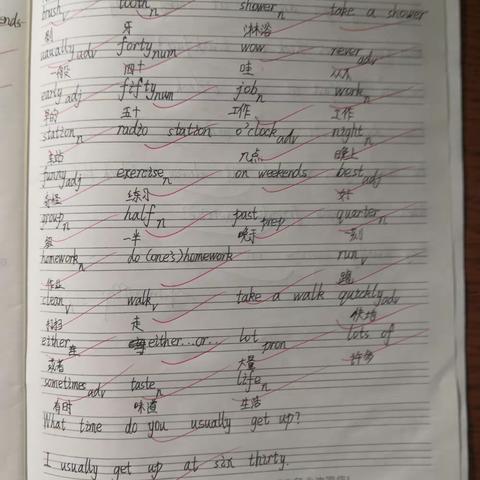 ends
brush v tooth n shower n take a shower
刷 牙 淋浴
usually adv forty num wow never adv
一般 四十 哇 从不
early adj fifty num job n work n
早的 五十 工作 工作
station n radio station o'clock adv night n
几点 晚上
funny adj exercise n on weekends best adj
练习
group n half n past prep quarter n
一半 晚于 一刻
homework n do (one's) homework run v
作业 跑
clean v walk v take a walk quickly adv
打扫 走
either either...or... lot pron lots of
或者 大量 许多
sometimes adv taste n life n
有时 味道 生活
What time do you usually get up?
I usually get up at six thirty.